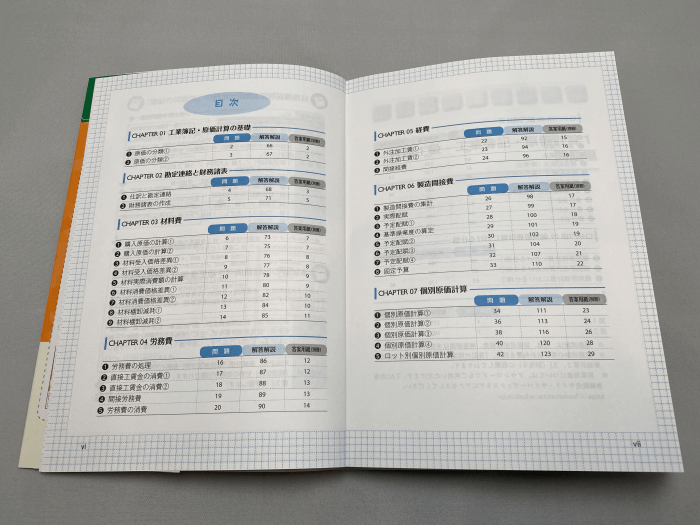 目次
CHAPTER 01 工業簿記・原価計算の基礎
問題 解答解説 答案用紙(別冊)
❶ 原価の分類① 2 66 2
❷ 原価の分類② 3 67 2
CHAPTER 02 勘定連絡と財務諸表
問題 解答解説 答案用紙(別冊)
❶ 仕訳と勘定連絡 4 68 3
❷ 財務諸表の作成 5 71 5
CHAPTER 03 材料費
問題 解答解説 答案用紙(別冊)
❶ 購入原価の計算① 6 73 7
❷ 購入原価の計算② 7 75 7
❸ 材料受入価格差異① 8 76 8
❹ 材料受入価格差異② 9 77 8
❺ 材料実際消費額の計算 10 78 9
❻ 材料消費価格差異① 11 80 9
❼ 材料消費価格差異② 12 82 10
❽ 材料棚卸減耗① 13 84 10
❾ 材料棚卸減耗② 14 85 11
CHAPTER 04 労務費
問題 解答解説 答案用紙(別冊)
❶ 労務費の処理 16 86 12
❷ 直接工賃金の消費① 17 87 12
❸ 直接工賃金の消費② 18 88 13
❹ 間接労務費 19 89 13
❺ 労務費の消費 20 90 14
vi
CHAPTER 05 経費
問題 解答解説 答案用紙(別冊)
❶ 外注加工賃① 22 92 15
❷ 外注加工賃② 23 94 16
❸ 間接経費 24 96 16
CHAPTER 06 製造間接費
問題 解答解説 答案用紙(別冊)
❶ 製造間接費の集計 26 98 17
❷ 実際配賦 27 99 17
❸ 予定配賦① 28 100 18
❹ 基準操業度の算定 29 101 19
❺ 予定配賦② 30 102 19
❻ 予定配賦③ 31 104 20
❼ 予定配賦④ 32 107 21
❽ 固定予算 33 110 22
CHAPTER 07 個別原価計算
問題 解答解説 答案用紙(別冊)
❶ 個別原価計算① 34 111 23
❷ 個別原価計算② 36 113 24
❸ 個別原価計算③ 38 116 26
❹ 個別原価計算④ 40 120 28
❺ ロット別個別原価計算 42 123 29
vii